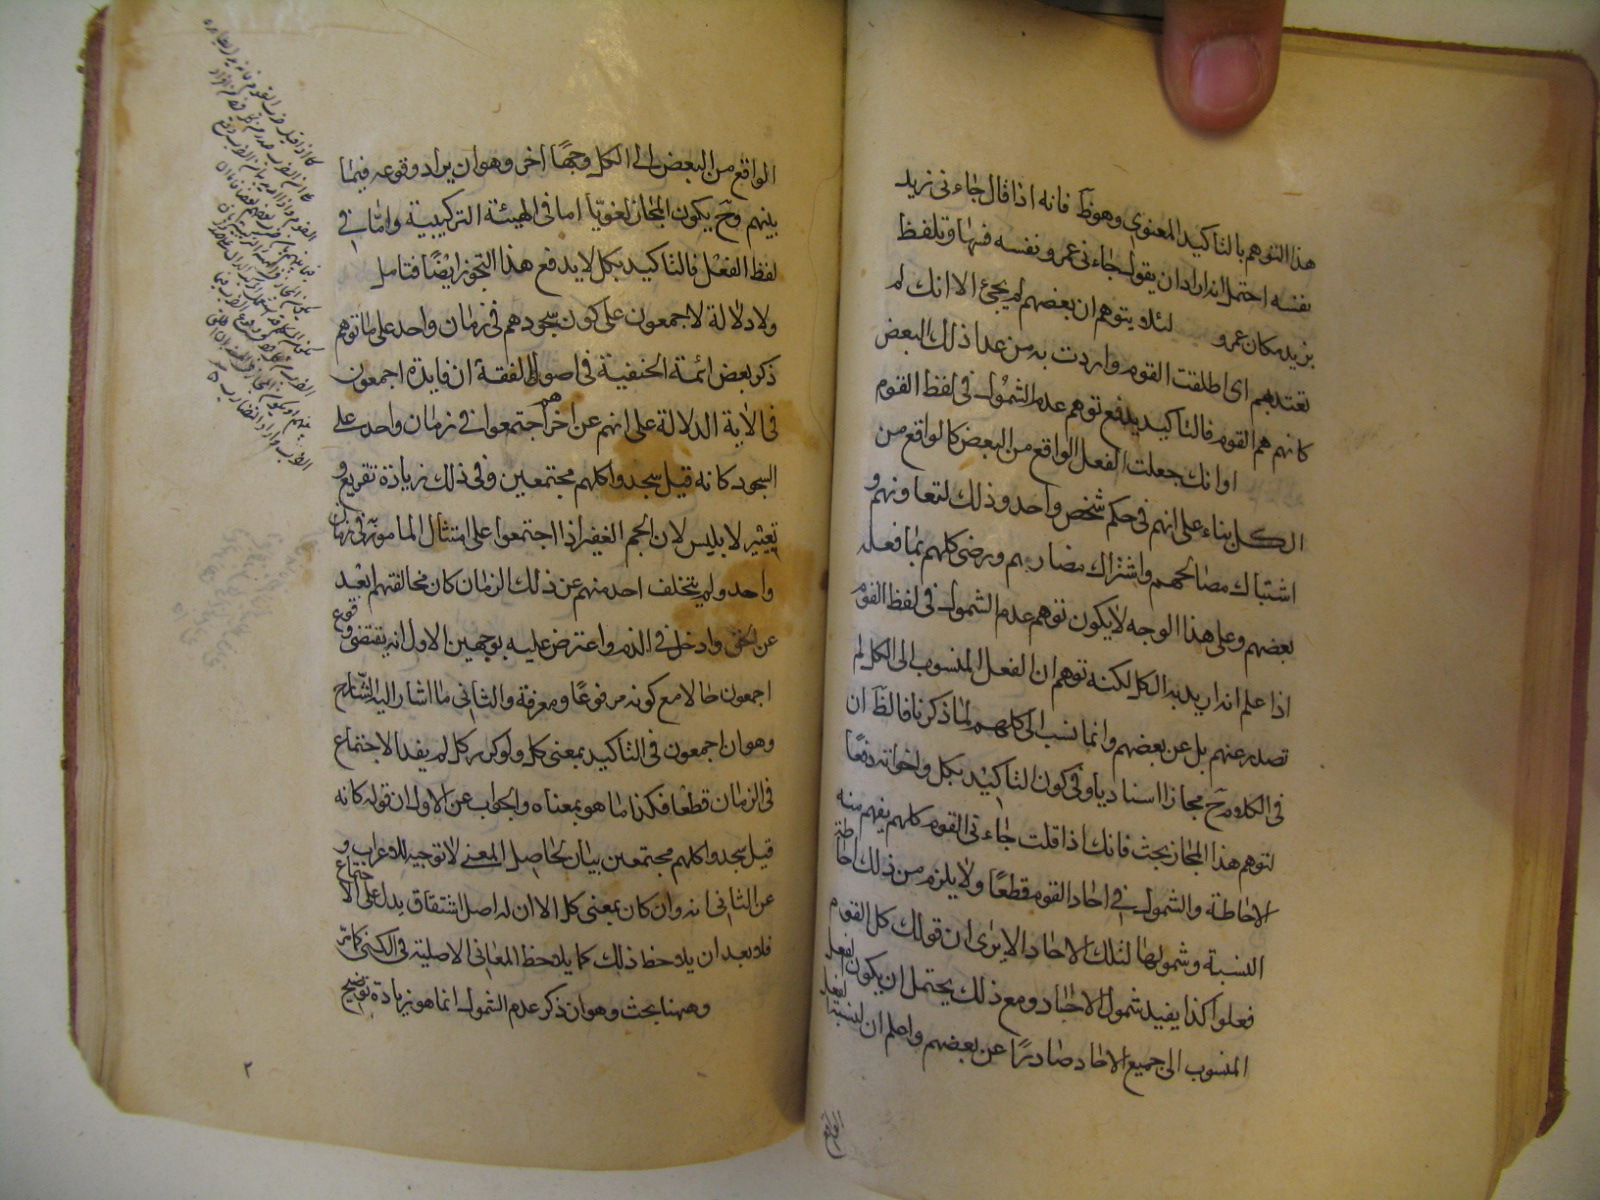 هذا التوهم بالتاكيد المعنوي وهوظ فانه اذا قال جاءنى زيد
نفسه احتمل انه اراد ان يقول جاءنى عمرو نفسه فسها وتلفظ
بزيد مكان عمرو لئلا يتوهم ان بعضهم لم يجئ الا انك لم
تعتد بهم اى اطلقت القوم واردت به من عدا ذلك البعض
كانهم هم القوم فالتاكيد يدفع توهم عدم الشمول فى لفظ القوم
او انك جعلت الفعل الواقع من البعض كالواقع من
الكل بناء على انهم فى حكم شخص واحد وذلك لتعاونهم و
اشتباك مصالحهم واشتراك مضاربهم ورضى كلهم بما فعله
بعضهم وعلى هذا الوجه لا يكون توهم عدم الشمول فى لفظ القوم
اذا علم انه اريد به الكل لكنه توهم ان الفعل المنسوب الى الكل لم
تصدر عنهم بل عن بعضهم وانما نسب الى كلهم لما ذكرنا فالظ ان
فى الكلام ح مجازا اسناديا وفى كون التاكيد بكل واخواته دفعًا
لتوهم هذا المجاز بحث فانك اذا قلت جاءنى القوم كلهم يفهم منه
الاحاطة والشمول فى احاد القوم قطعًا ولا يلزم من ذلك احاطة
النسبة وشمولها لتلك الاحاد الا يرى ان قولك كل القوم
فعلوا كذا يفيد شمول الاحاد ومع ذلك يحتمل ان يكون الفعل
المنسوب الى جميع الاحاد صادرًا عن بعضهم واعلم ان لنسبة الفعل
الواقع
الواقع من البعض الى الكل وجهًا اخر وهو ان يراد وقوعه فيما
بينهم وح يكون المجاز لغويّا اما فى الهيئة التركيبية واما فى
لفظ الفعل فالتاكيد بكل لا يدفع هذا التجوز ايضًا فتامل
ولا دلالة لاجمعون على كون سجودهم فى زمان واحد على ما توهم
ذكر بعض ائمة الحنفية فى اصول الفقه ان فايدة اجمعون
فى الاية الدلالة على انهم عن اخرهم اجتمعوا فى زمان واحد على
السجود كانه قيل سجدوا كلهم مجتمعين وفى ذلك زيادة تقريع و
تعيير لابليس لان الجم الغفير اذا اجتمعوا على امتثال المامور به فى زمان
واحد ولم يتخلف احد منهم عن ذلك الزمان كان مخالفتهم ابعد
عن الحق وادخل فى الذم واعترض عليه بوجهين الاول انه يقتضى وقوع
اجمعون حالا مع كونه مرفوعًا ومعرفة والثانى ما اشار اليه الشارح
وهو ان اجمعون فى التاكيد بمعنى كل ولو كرر كل لم يفد الاجتماع
فى الزمان قطعًا فكذا ما هو بمعناه والجواب عن الاول ان قوله كانه
قيل سجدوا كلهم مجتمعين بيان لحاصل المعنى لا توجيه للاعراب و
عن الثانى انه وان كان بمعنى كل الا ان له اصل اشتقاق يدل على الاجتماع
فلا بعد ان يلاحظ ذلك كما يلاحظ المعانى الاصلية فى الكنى كما مر
وههنا بحث وهو ان ذكر عدم الشمول انما هو زيادة توضيح
٢